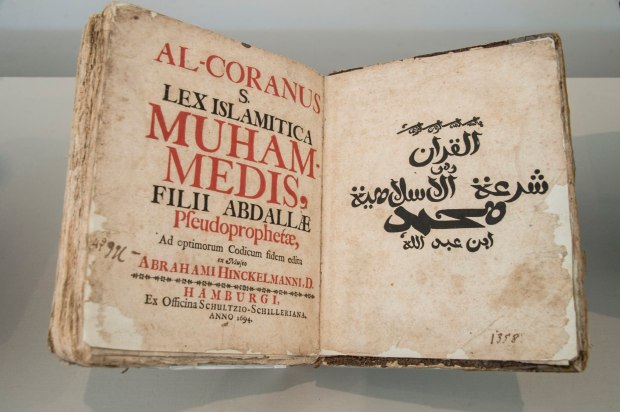 AL-CORANUS
S.
LEX ISLAMITICA
MUHAM-
MEDIS,
FILII ABDALLÆ
Pseudoprophetæ,
Ad optimorum Codicum fidem edita
ex Museo
ABRAHAMI HINCKELMANNI.D.
HAMBURGI,
Ex Officina SCHULTZIO-SCHILLERIANA,
ANNO 1694.
القران
وهي
شرعة الاسلامية
محمد
ابن عبد الله
1358